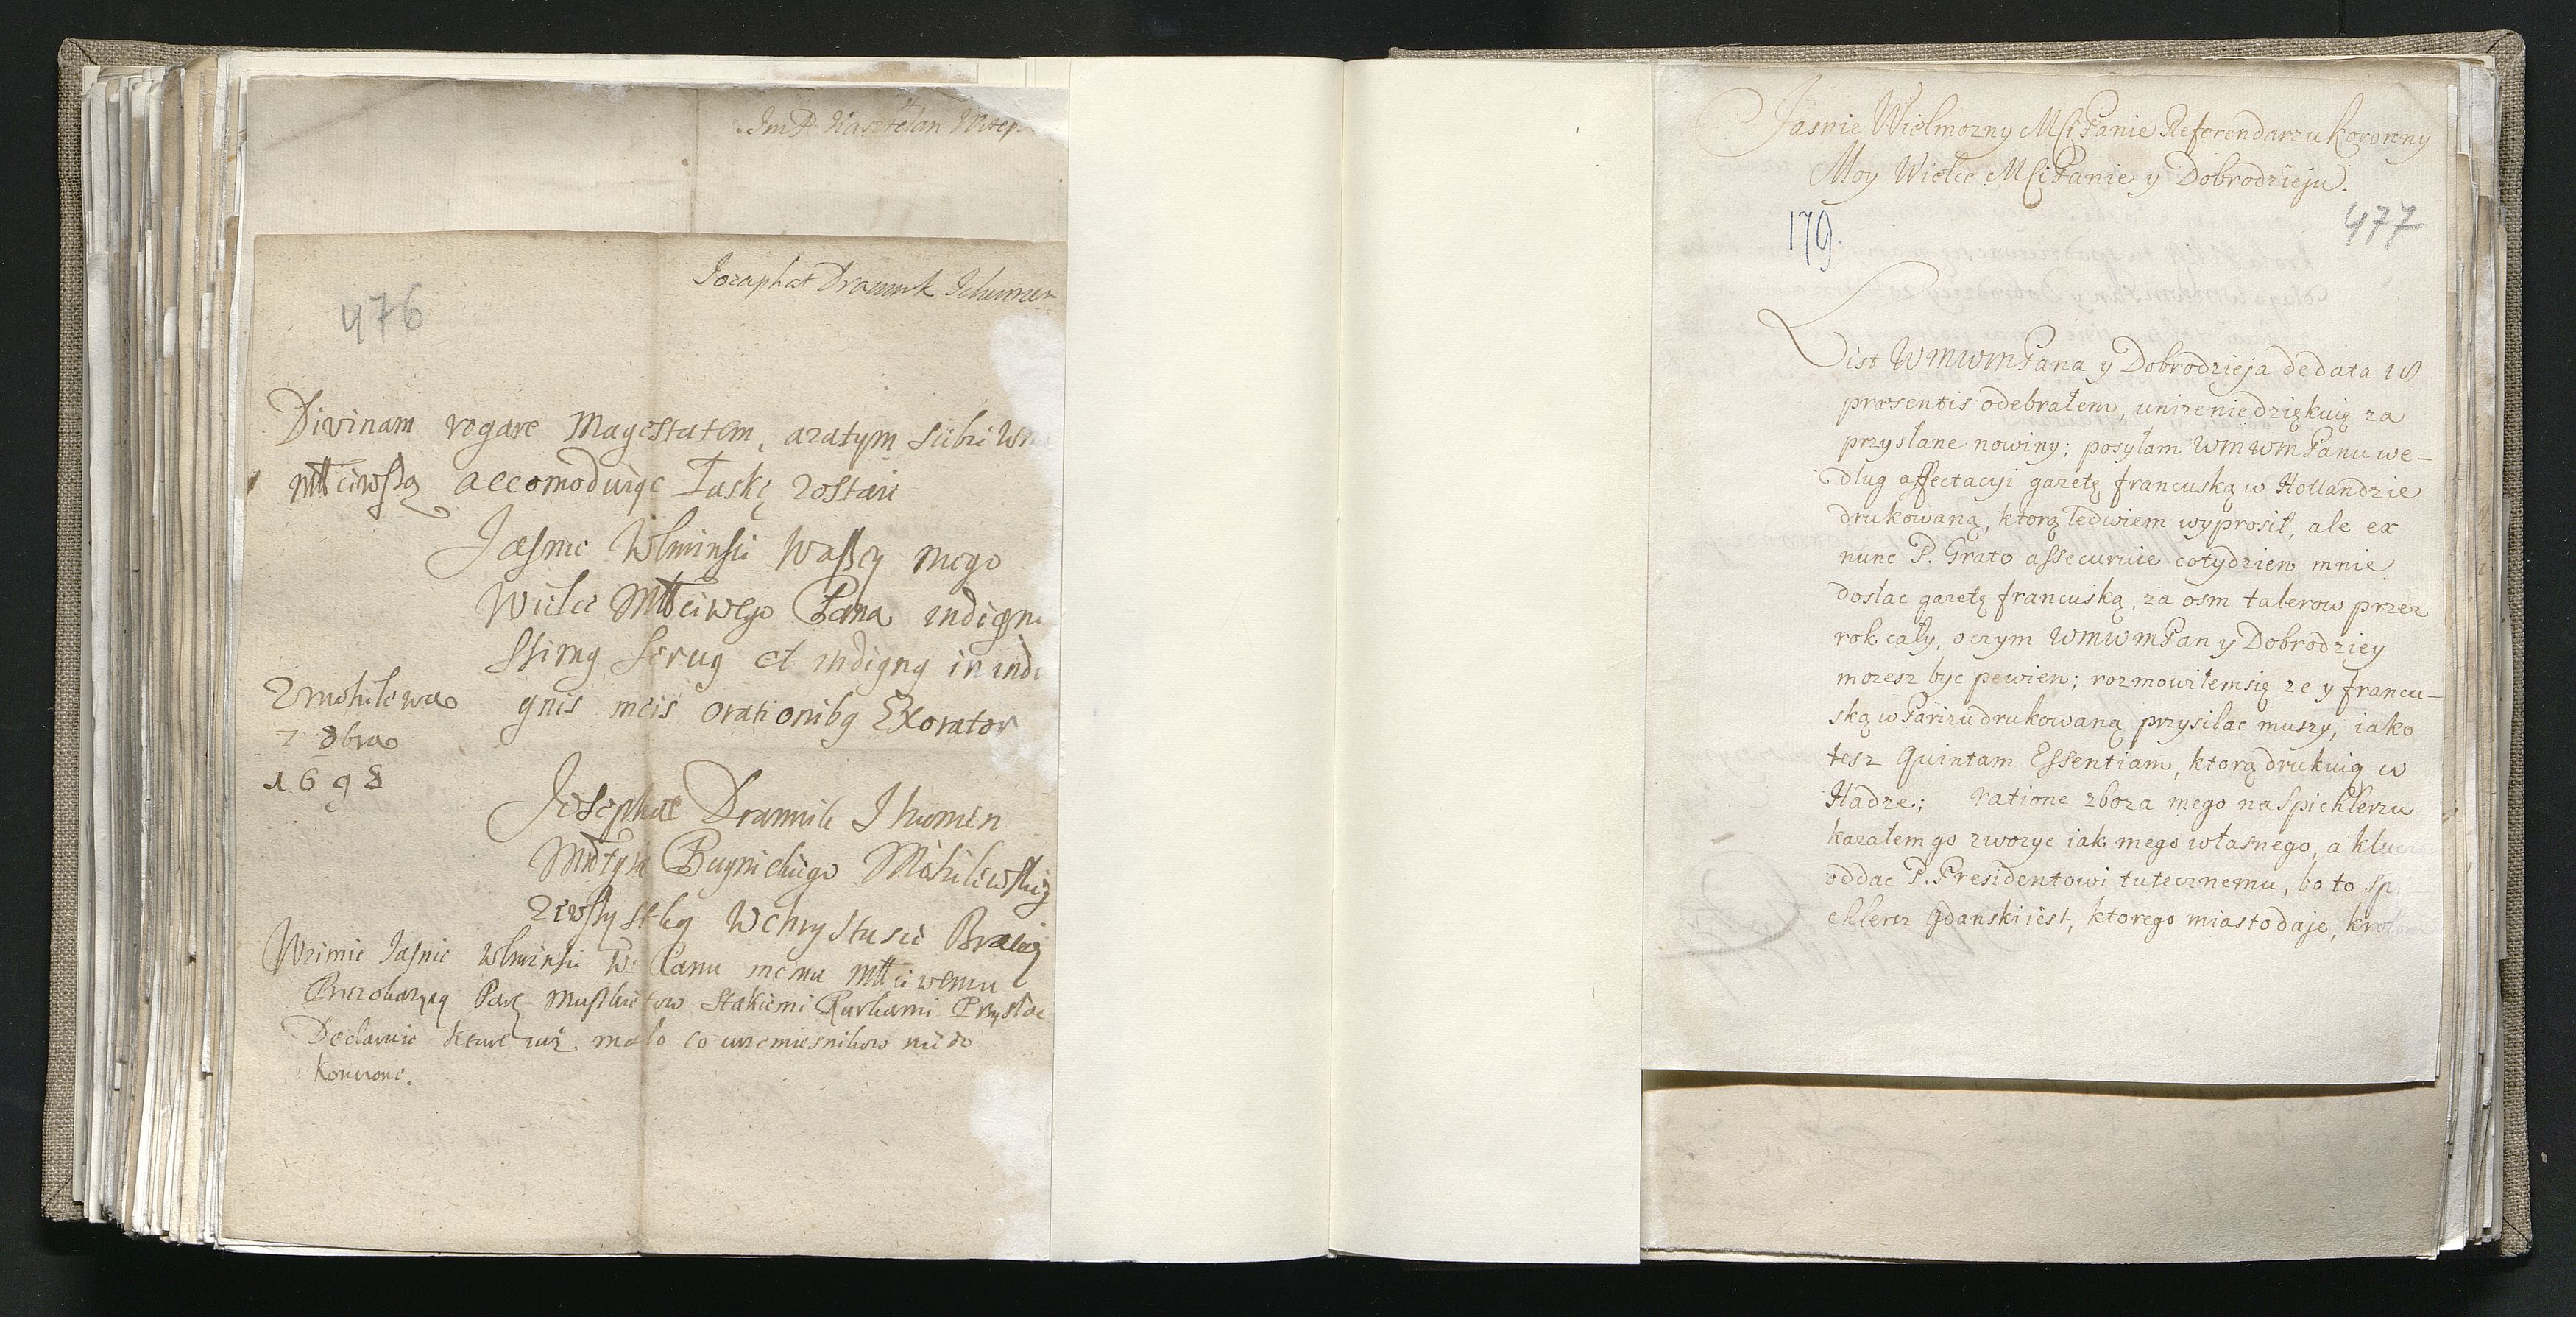 Im P. Kasztelan Witep
Iozaphat Dramik Ihumen
476
Divinam rogare Magestatem, azatym siebie
Mtciwszą accomoduiąc Łaskę zostaie
Jasnie Wlmżnsci Waszey mego
Wielce Mtciwego Pana indigni
ssimg serug et indigng in indi
gnis meis orationibg Exorator
Z Mohilewa
7 8bra
1698
Josephat Dramik Ihumen
Buynickiego Mohilewskię
zewszystką w Chrystusie Bracią
W zimie Jasnie Wlmżnsci Panu memu Mtciwemu
Parę Muszkietow Kurkami Przysłac
Declaruie ktore iuż mało co urzemiesnikow niedo
konczone.
Jasnie Wielmozny MŚi Panie Referendarzu koronny
Moy Wielce MŚiPanie y Dobrodzieju.
179.
477
List WMWMPana y Dobrodzieja de data 18
præsentis odebrałem, unizenie dziękuię za
przysłane nowiny; posyłam WMWMPanu we-
dlug affectacyi gazetę francuską w Hollandzie
drukowaną, ktorą ledwiem wyprosił, ale ex
nunc P. Grato assecuruie cotydzien mnie
dostac gazetę francuską, za osm talerow przez
rok cały, oczym WMWMPan y Dobrodziey
mozesz byc pewien; rozmowiłemsię ze y francu-
ską w Parizu drukowaną przysilac muszy, iako
tesz Quintam Essentiam, ktorą drukuią w
Hadze; ratione zboza mego na Spichlerzu
kazałem go zwozyc iak mego własnego, a klucz
oddac P. Presidentowi tutecznemu, bo to Spi
chlerz gdanski iest, ktorego miasto daje, krolom